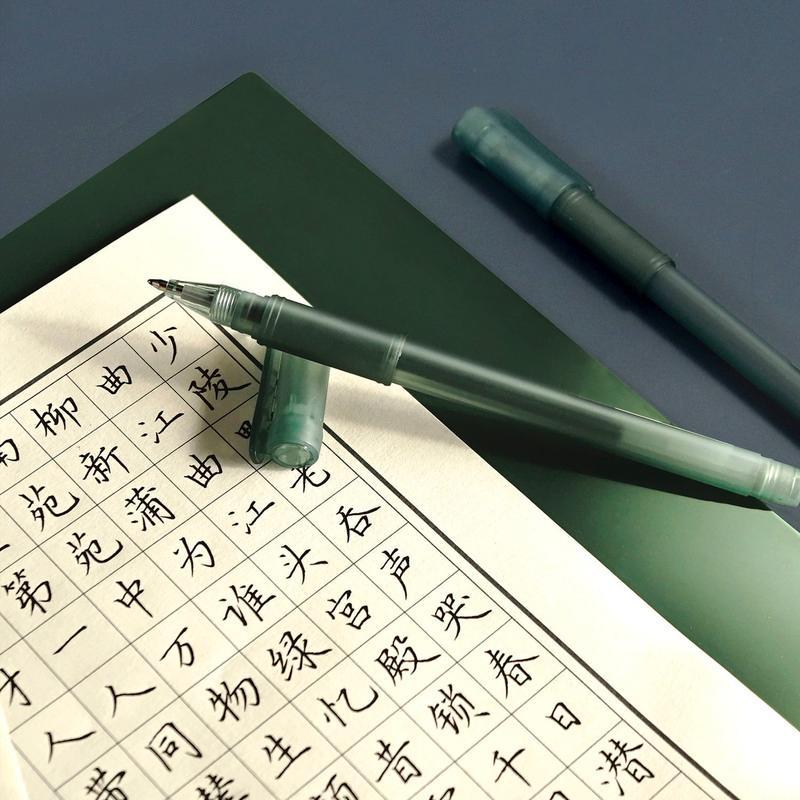 少陵老吞声哭春日潜
曲江曲江头宫殿锁千
柳新蒲为谁绿忆昔
南苑苑中万物生颜
第一人同辇
才人带